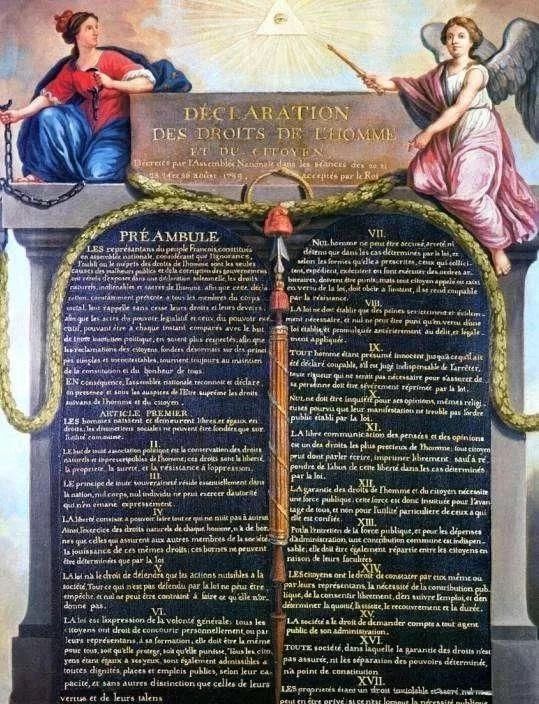 DÉCLARATION
DES DROITS DE L'HOMME
ET DU CITOYEN,
Décrétés par l'Assemblée Nationale dans les séances des 20, 21
23, 24 et 26 août 1789, acceptés par le Roi
PRÉAMBULE
LES représentans du peuple François, constitués
en assemblée nationale, considérant que l'ignorance,
l'oubli ou le mépris des droits de l'homme sont les seules
causes des malheurs publics et de la corruption des gouvernemens
ont résolu d'exposer dans une déclaration solemnelle, les droits
naturels, inaliénables et sacrés de l'homme; afin que cette décla
ration, constamment présente à tous les membres du corps
social, leur rappelle sans cesse leurs droits et leurs devoirs;
afin que les actes du pouvoir législatif et ceux du pouvoir exé
cutif, pouvant être à chaque instant comparés avec le but
de toute institution politique, en soient plus respectés; afin que
les réclamations des citoyens, fondées désormais sur des princi
pes simples et incontestables, tournent toujours au maintien
de la constitution et du bonheur de tous.
EN conséquence, l'assemblée nationale reconnoit et déclare
en présence et sous les auspices de l'Etre suprême les droits
suivans de l'homme et du citoyen.
ARTICLE PREMIER
LES hommes naissent et demeurent libres et égaux en
droits, les distinctions sociales ne peuvent être fondées que sur
l'utilité commune.
II.
LE but de toute association politique est la conservation des droits
naturels et imprescriptibles de l'homme; ces droits sont la liberté,
la propriété, la sureté, et la résistance à l'oppression.
III.
LE principe de toute souveraineté réside essentiellement dans
la nation, nul corps, nul individu ne peut exercer d'autorité
qui n'en émane expressément.
IV.
LA liberté consiste à pouvoir faire tout ce qui ne nuit pas à autrui
Ainsi, l'exercice des droits naturels de chaque homme, n'a de bor-
nes que celles qui assurent aux autres membres de la société
la jouissance de ces mêmes droits; ces bornes ne peuvent
être déterminées que par la loi
V.
LA loi n'a le droit de défendre que les actions nuisibles à la
société. Tout ce qui n'est pas défendu par la loi ne peut être
empêché, et nul ne peut être contraint à faire ce qu'elle n'or-
donne pas.
VI.
LA loi est l'expression de la volonté générale; tous les
citoyens ont droit de concourir personnellement, ou par
leurs représentans, à sa formation; elle doit être la même
pour tous, soit qu'elle protege, soit qu'elle punisse. Tous les cito
yens étant égaux à ses yeux, sont également admissibles à
toutes dignités, places et emplois publics, selon leur capa
cité, et sans autres distinction que celles de leurs
vertus et de leurs talens
VII.
NUL homme ne peut être accusé, arreté, ni
détenu que dans les cas déterminés par la loi, et
selon les formes qu'elle a prescrites, ceux qui sollici-
tent, expédient, exécutent ou font exécuter des ordres ar-
bitraires, doivent être punis; mais tout citoyen appelé ou saisi
en vertu de la loi, doit obéir à l'instant, il se rend coupable
par la résistance.
VIII.
LA loi ne doit établir que des peines strictement et évidem-
ment nécessaire, et nul ne peut être puni qu'en vertu d'une
loi établie et promulguée antérieurement au délit, et légale-
ment appliquée.
IX.
TOUT homme étant présumé innocent jusqu'à ce qu'il ait
été déclaré coupable, s'il est jugé indispensable de l'arrêter,
toute rigueur qui ne seroit pas nécessaire pour s'assurer de
sa personne doit être sévèrement réprimée par la loi.
X.
NUL ne doit être inquiété pour ses opinions, mêmes religi
euses pourvu que leur manifestation ne trouble pas l'ordre
public établi par la loi.
XI.
LA libre communication des pensées et des opinions
est un des droits les plus précieux de l'homme; tout citoyen
peut donc parler, écrire, imprimer librement: sauf à ré
pondre de l'abus de cette liberté dans les cas déterminés
par la loi.
XII.
LA garantie des droits de l'homme et du citoyen nécessite
une force publique; cette force est donc instituée pour l'avan
tage de tous, et non pour l'utilité particuliere de ceux à qui
elle est confiée.
XIII.
Pour l'entretien de la force publique, et pour les dépenses
d'administration, une contribution commune est indispen-
sable; elle doit être également répartie entre les citoyens en
raison de leurs facultées
XIV.
LES citoyens ont le droit de constater par eux même ou
par leurs représentans, la nécessité de la contribution pub
lique, de la consentir librement, d'en suivre l'emploi, et d'en
déterminer la quotité, l'assiette, le recouvrement et la durée.
XV.
LA société a le droit de demander compte à tout agent
public de son administration.
XVI.
TOUTE société, dans laquelle la garantie des droits n'est
pas assurée, ni les séparation des pouvoirs déterminée,
n'a point de constitution
XVII.
LES propriétés étant un droit inviolable et sacré, nul ne
peut en être privé, si ce n'est lorsque la nécessité publique